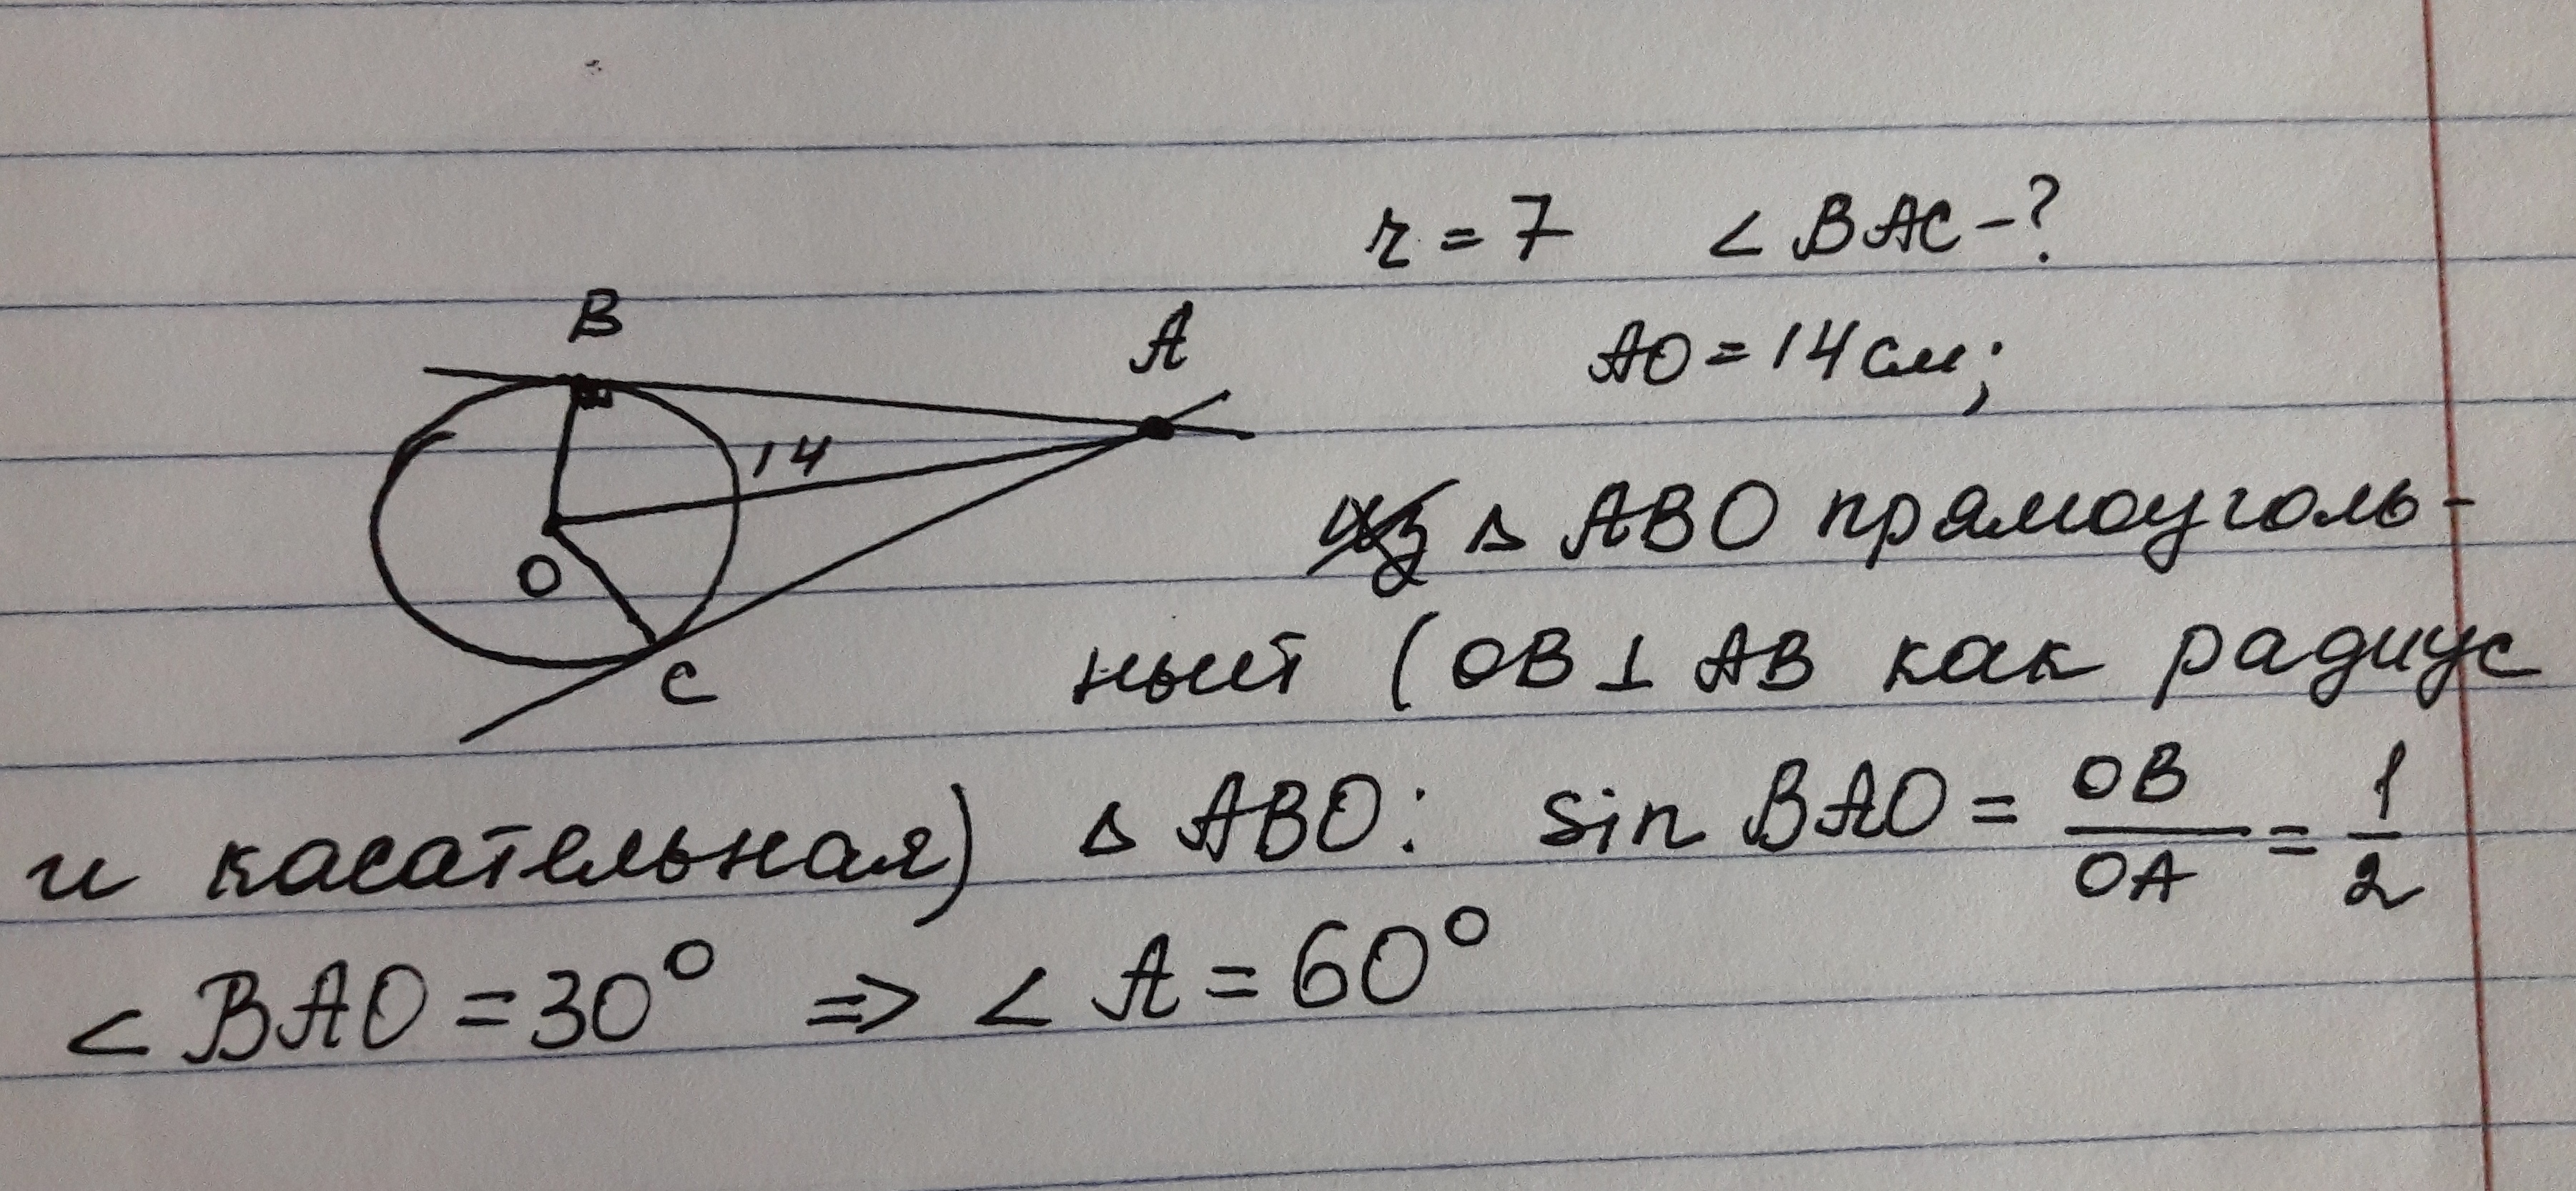 r = 7 < BAC - ?
B
A
AO = 14 см;
14
из △ ABO прямоуголь-
O
ный (OB ⊥ AB как радиус
C
и касательная) △ ABO: sin BAO = OB/OA = 1/2
< BAO = 30° => < A = 60°